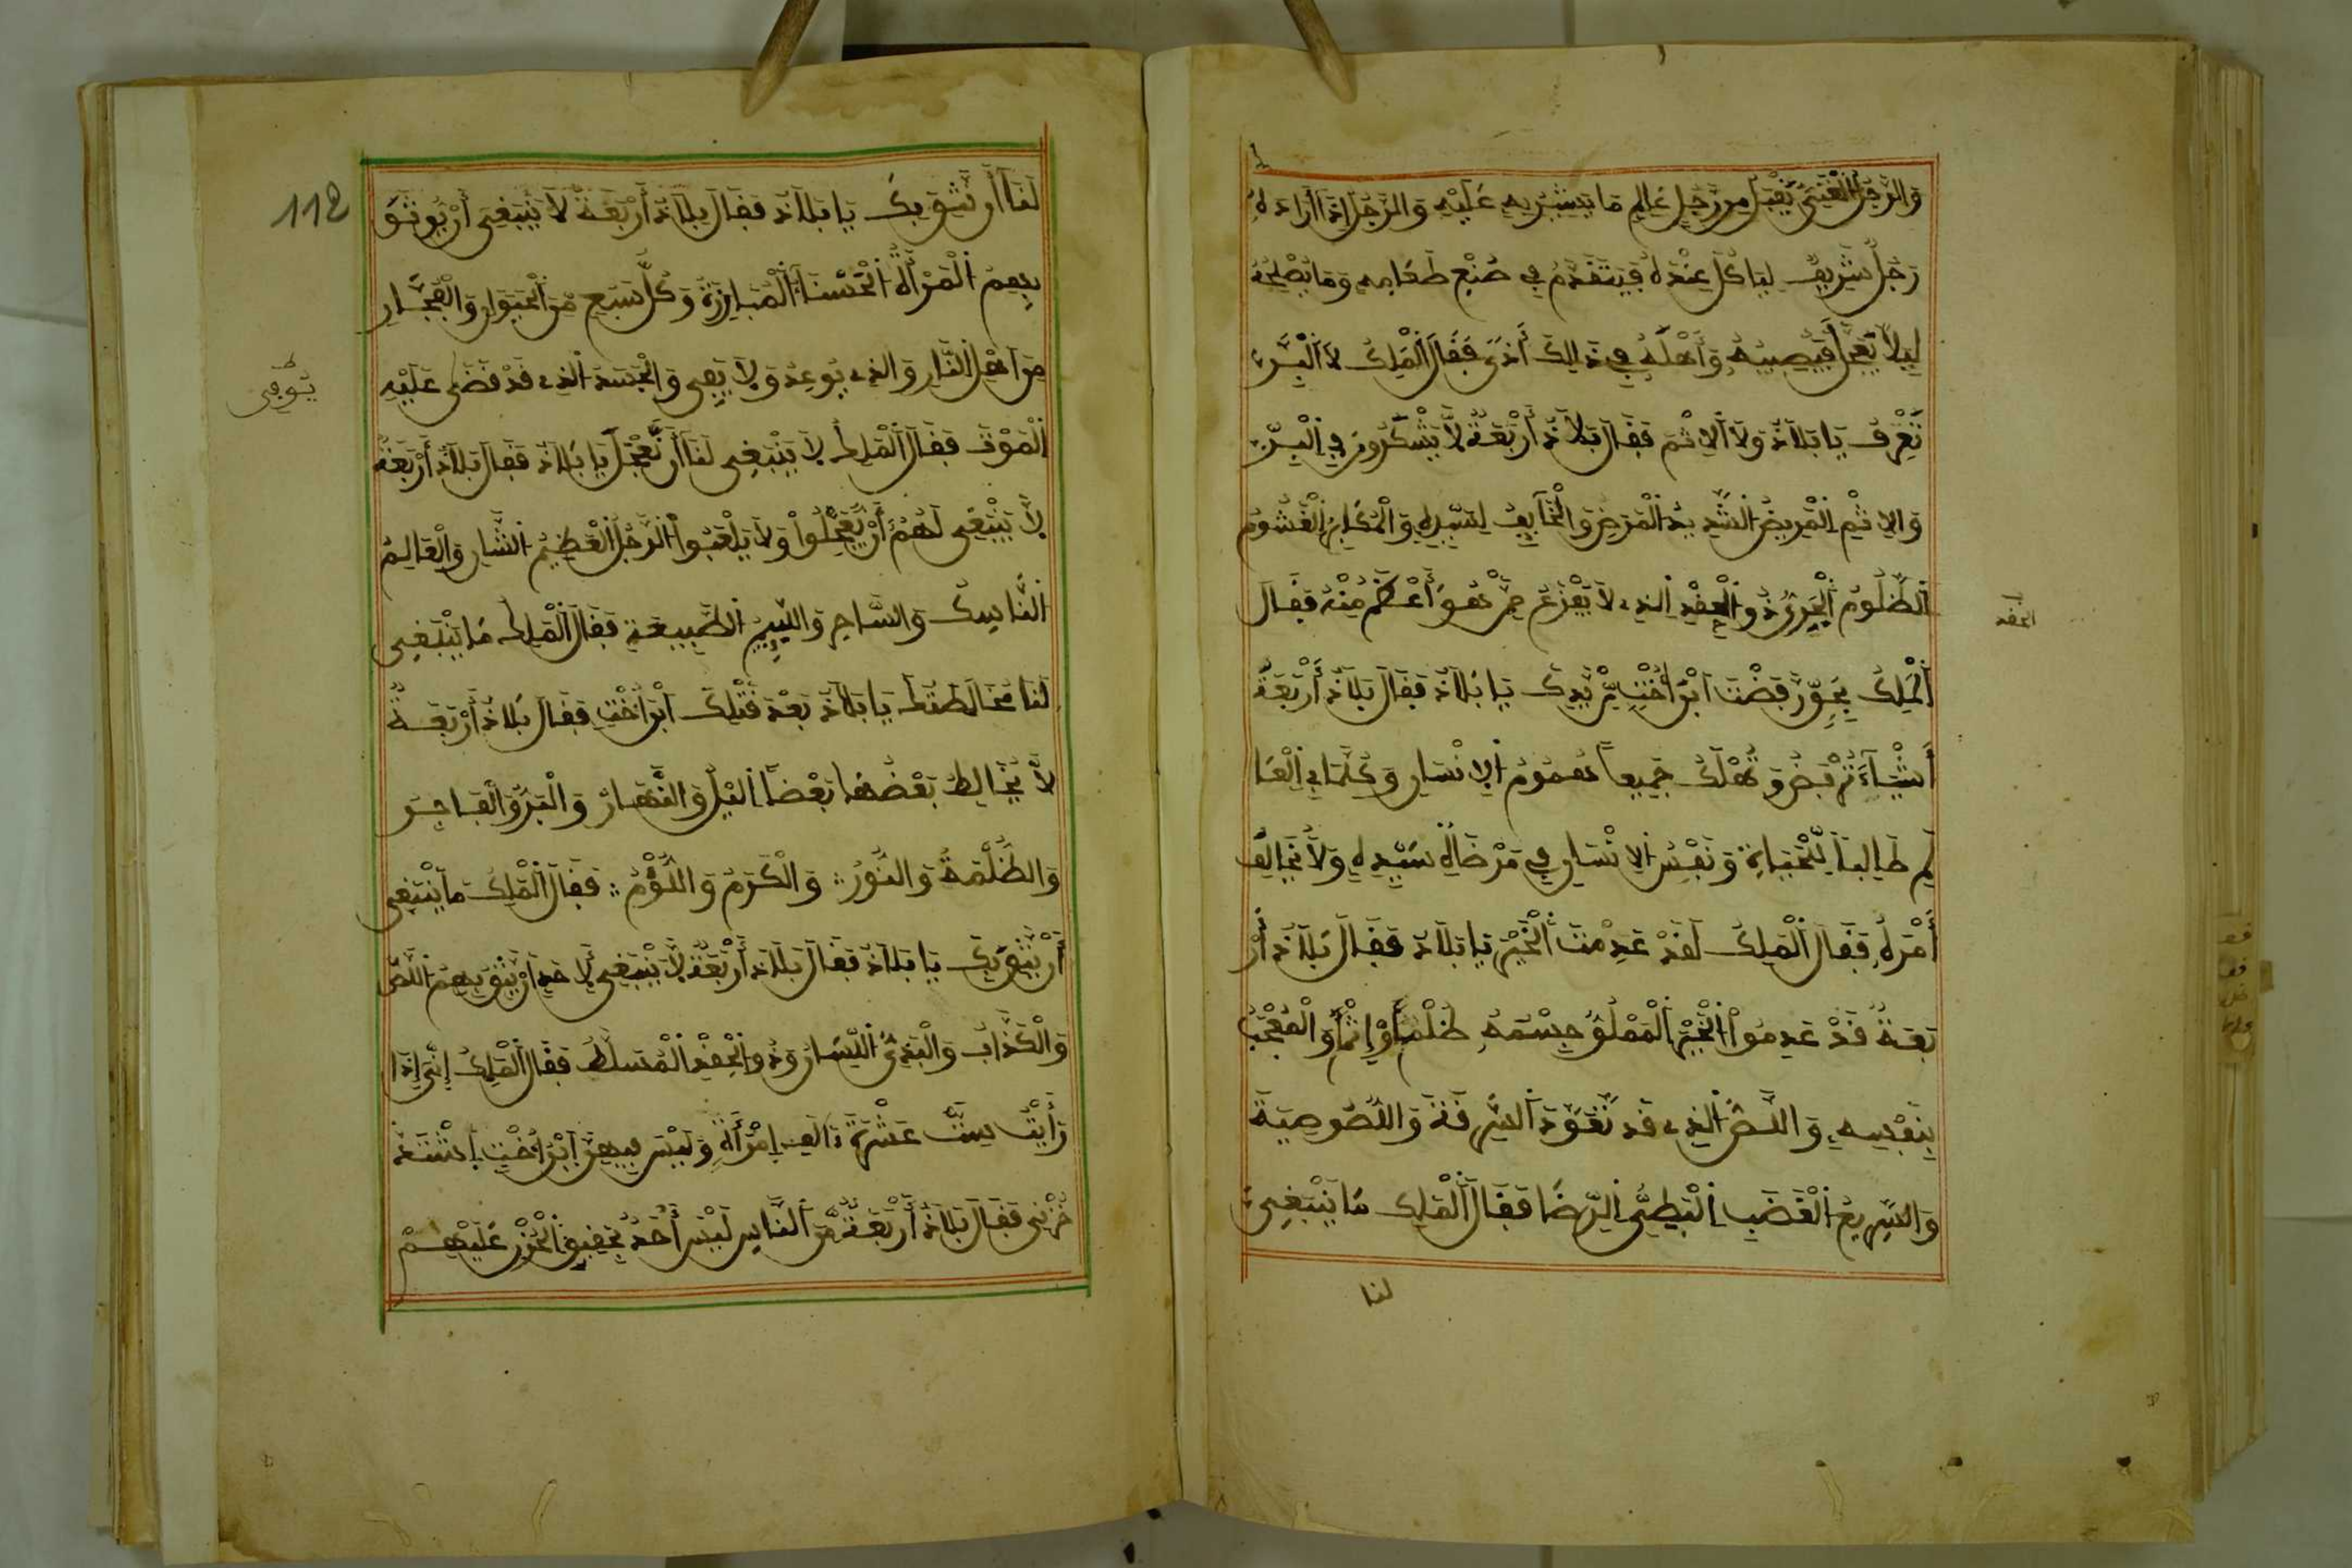 وَالرَّجُلُ الْغَنِيُّ يَقْبَلُ مِن رَّجُلٍ عَالِمٍ مَا يُشِيرُ بِهِ عَلَيْهِ وَالرَّجُلُ إِذَا أَرَادَ لَهُ
رَجُلٌ شَرِيفٌ لِيَاكُلَ عِنْدَهُ فَيَتَقَدَّمُ فِي صُنْعِ طَعَامِهِ وَمَا يُصْلِحُهُ
لِيَلاَّ يَعْجَلَ فَيُصِيبَهُ وَأَهْلَهُ فِي ذَالِكَ أَذًى فَقَالَ الْمَلِكُ لاَ الْبِرَّ
تَعْرِفُ يَا بَلاَذُ وَلاَ الاِثْمَ فَقَالَ بَلاَذُ أَرْبَعَةٌ لاَّ يَشْكُرُونَ فِي الْبِرِّ
وَالاِثْمِ الْمَرِيضُ الشَّدِيدُ الْمَرَضِ وَالْخَآيِفُ لِسَيِّدِهِ وَالْمُكَابِرُ الْغَشُومُ
الظَّلُومُ الْجَرِيُّ ذُو الْحِقْدِ الذِي لاَ يَفْزَعُ مِمَّنْ هُوَ أَعْظَمُ مِنْهُ فَقَالَ
الحقد
الْمَلِكُ بِجَوْرٍ قَبَضْتَ ابْنَ أُخْتِي بِيَدِكَ يَا بَلاَذُ فَقَالَ بَلاَذُ أَرْبَعَةُ
أَشْيَآءَ تُقْبَضُ وَتُهْلَكُ جَمِيعاً هُمُومُ الاِنْسَانِ وَكُلَّمَا فِي الْعَا
لَمِ طَالِباً لِّلْحَيَاةِ وَنَفْسُ الاِنْسَانِ فِي مَرْضَاةِ سَيِّدِهِ وَلاَ يُخَالِفُ
أَمْرَهُ فَقَالَ الْمَلِكُ لَقَدْ عَدِمْتَ الْخَيْرَ يَا بَلاَذُ فَقَالَ بَلاَذُ أَرْ
بَعَةٌ قَدْ عَدِمُواْ الْخَيْرَ الْمَمْلُوُّ جِسْمُهُ ظُلْماً وَإِثْماً وَالْمُعْجَبُ
بِنَفْسِهِ وَاللِّصُّ الذِي قَد تَّعَوَّدَ السَّرِقَةَ وَاللُّصُوصِيَةَ
وَالسَّرِيعُ الْغَضَبِ الْبَطِيُّ الرِّضَا فَقَالَ الْمَلِكُ مَا يَنْبَغِي
لنا
118
لَنَا أَن نَّثِقَ بِكَ يَا بَلاَذُ فَقَالَ بَلاَذُ أَرْبَعَةٌ لاَ يَنْبَغِي أَنْ يُوثَقَ
بِهِمُ الْمَرْأَةُ الْحَسْنَآءُ الْمُبَارِزَةُ وَكُلُّ سَبُعٍ مِّنَ الْحَيَوَانِ وَالْفُجَّارِ
مِنَ اهْلِ النَّارِ وَالذِي يُوعِدُ وَلاَ يَفِي وَالْجَسَدَ الذِي قَدْ قُضِيَ عَلَيْهِ
يُوَفِّي
الْمَوْتُ فَقَالَ الْمَلِكُ لاَ يَنْبَغِي لَنَا أَن نَّعْجَلَ يَا بَلاَذُ فَقَالَ بَلاَذُ أَرْبَعَةٌ
لاَّ يَنْبَغِي لَهُمُ أَنْ يَّعْجَلُواْ وَلاَ يَلْعَبُواْ الرَّجُلُ الْعَظِيمُ الشَّانِ وَالْعَالِمُ
النَّاسِكُ وَالسَّاحِرُ وَاللَّئِيمُ الطَّبِيعَةِ فَقَالَ الْمَلِكُ مَا يَنْبَغِي
لَنَا مُخَالَطَتُكَ يَا بَلاَذُ بَعْدَ قَتْلِكَ ابْنَ أُخْتِي فَقَالَ بَلاَذُ أَرْبَعَةٌ
لاَّ يُخَالِطُ بَعْضُهَا بَعْضاً اليْلُ وَالنَّهَارُ وَالْبَرُّ وَالْفَاجِرُ
وَالظُّلْمَةُ وَالنُّورُ وَالْكَرَمُ وَاللُّؤْمُ فَقَالَ الْمَلِكُ مَا يَنْبَغِي
أَنْ يُّثَقَ بِكَ يَا بَلاَذُ فَقَالَ بَلاَذُ أَرْبَعَةٌ لاَّ يَنْبَغِي لِأَحَدٍ أَنْ يَّثِقَ بِهِمُ اللِّصُّ
وَالْكَذَّابُ وَالْبَذِيُّ اللِّسَانِ وَذُو الْحِقْدِ الْمُسَلَّطُ فَقَالَ الْمَلِكُ إِنِّي إِذَا
رَأَيْتُ سِتَّ عَشْرَةَ أَلْفَ امْرَأَةٍ وَلَيْسَ فِيهِنَّ ابْنُ أُخْتِي اشْتَدَّ
حُزْنِي فَقَالَ بَلاَذُ أَرْبَعَةٌ مِّنَ النَّاسِ لَيْسَ أَحَدٌ بِحَقِيقِ الْحُزْنِ عَلَيْهِمْ